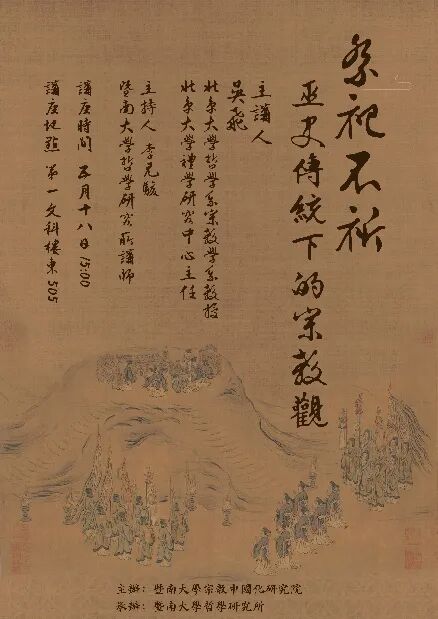 祭祀不祈
巫史傳統下的宗教觀
主講人
吳飛
北京大學哲學系宗教學系教授
北京大學禮學研究中心主任
主持人 李元駿
暨南大學哲學研究所講師
講座時間 五月十八日 15:00
講座地點 第一文科樓東505
主辦：暨南大學宗教中國化研究院
承辦：暨南大學哲學研究所